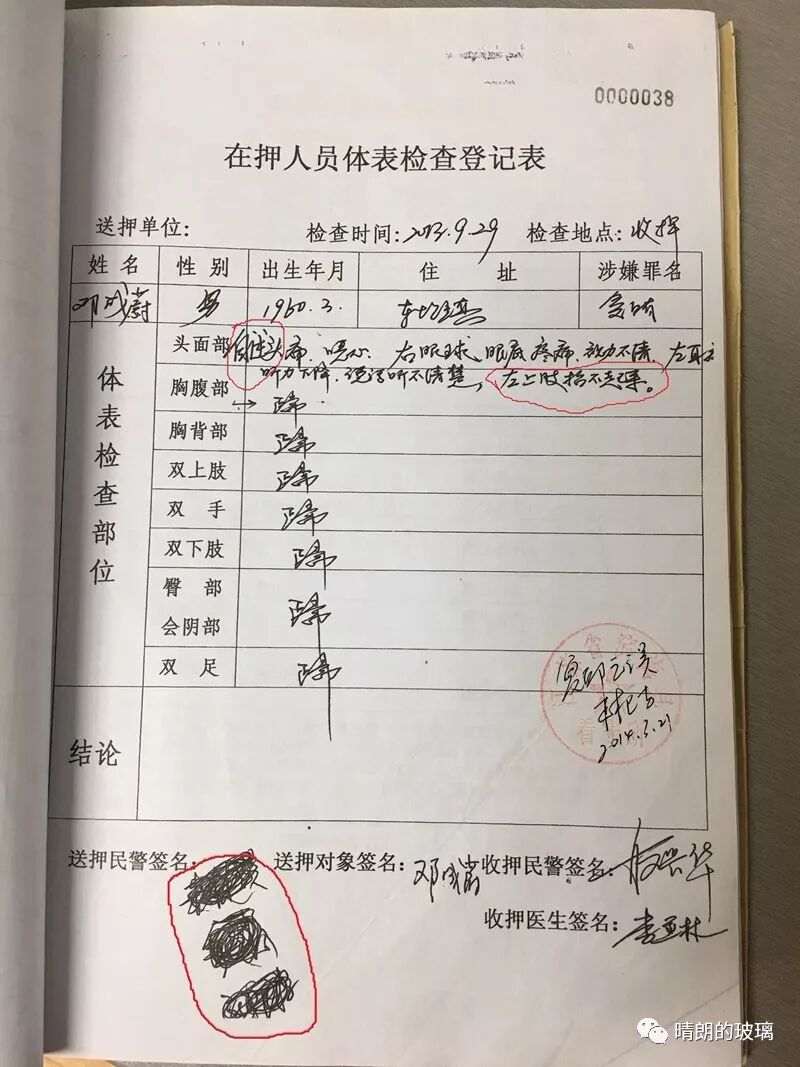 0000038
在押人员体表检查登记表
送押单位: 检查时间:2013.9.29 检查地点:收押
姓名 性别 出生年月 住址 涉嫌罪名
邓成蔚 男 1960.3.
体表检查部位
头面部 自述头痛、恶心 右眼球、眼底疼痛、视力不清、左耳
听力下降、说话听不清楚,左上肢抬不起来。
胸腹部 正常
胸背部 正常
双上肢 正常
双手 正常
双下肢 正常
臀部
会阴部 正常
双足 正常
复印
2014.3.21
看守所
结论
送押民警签名: 送押对象签名:邓成蔚 收押民警签名:
收押医生签名:李亚林
晴朗的玻璃